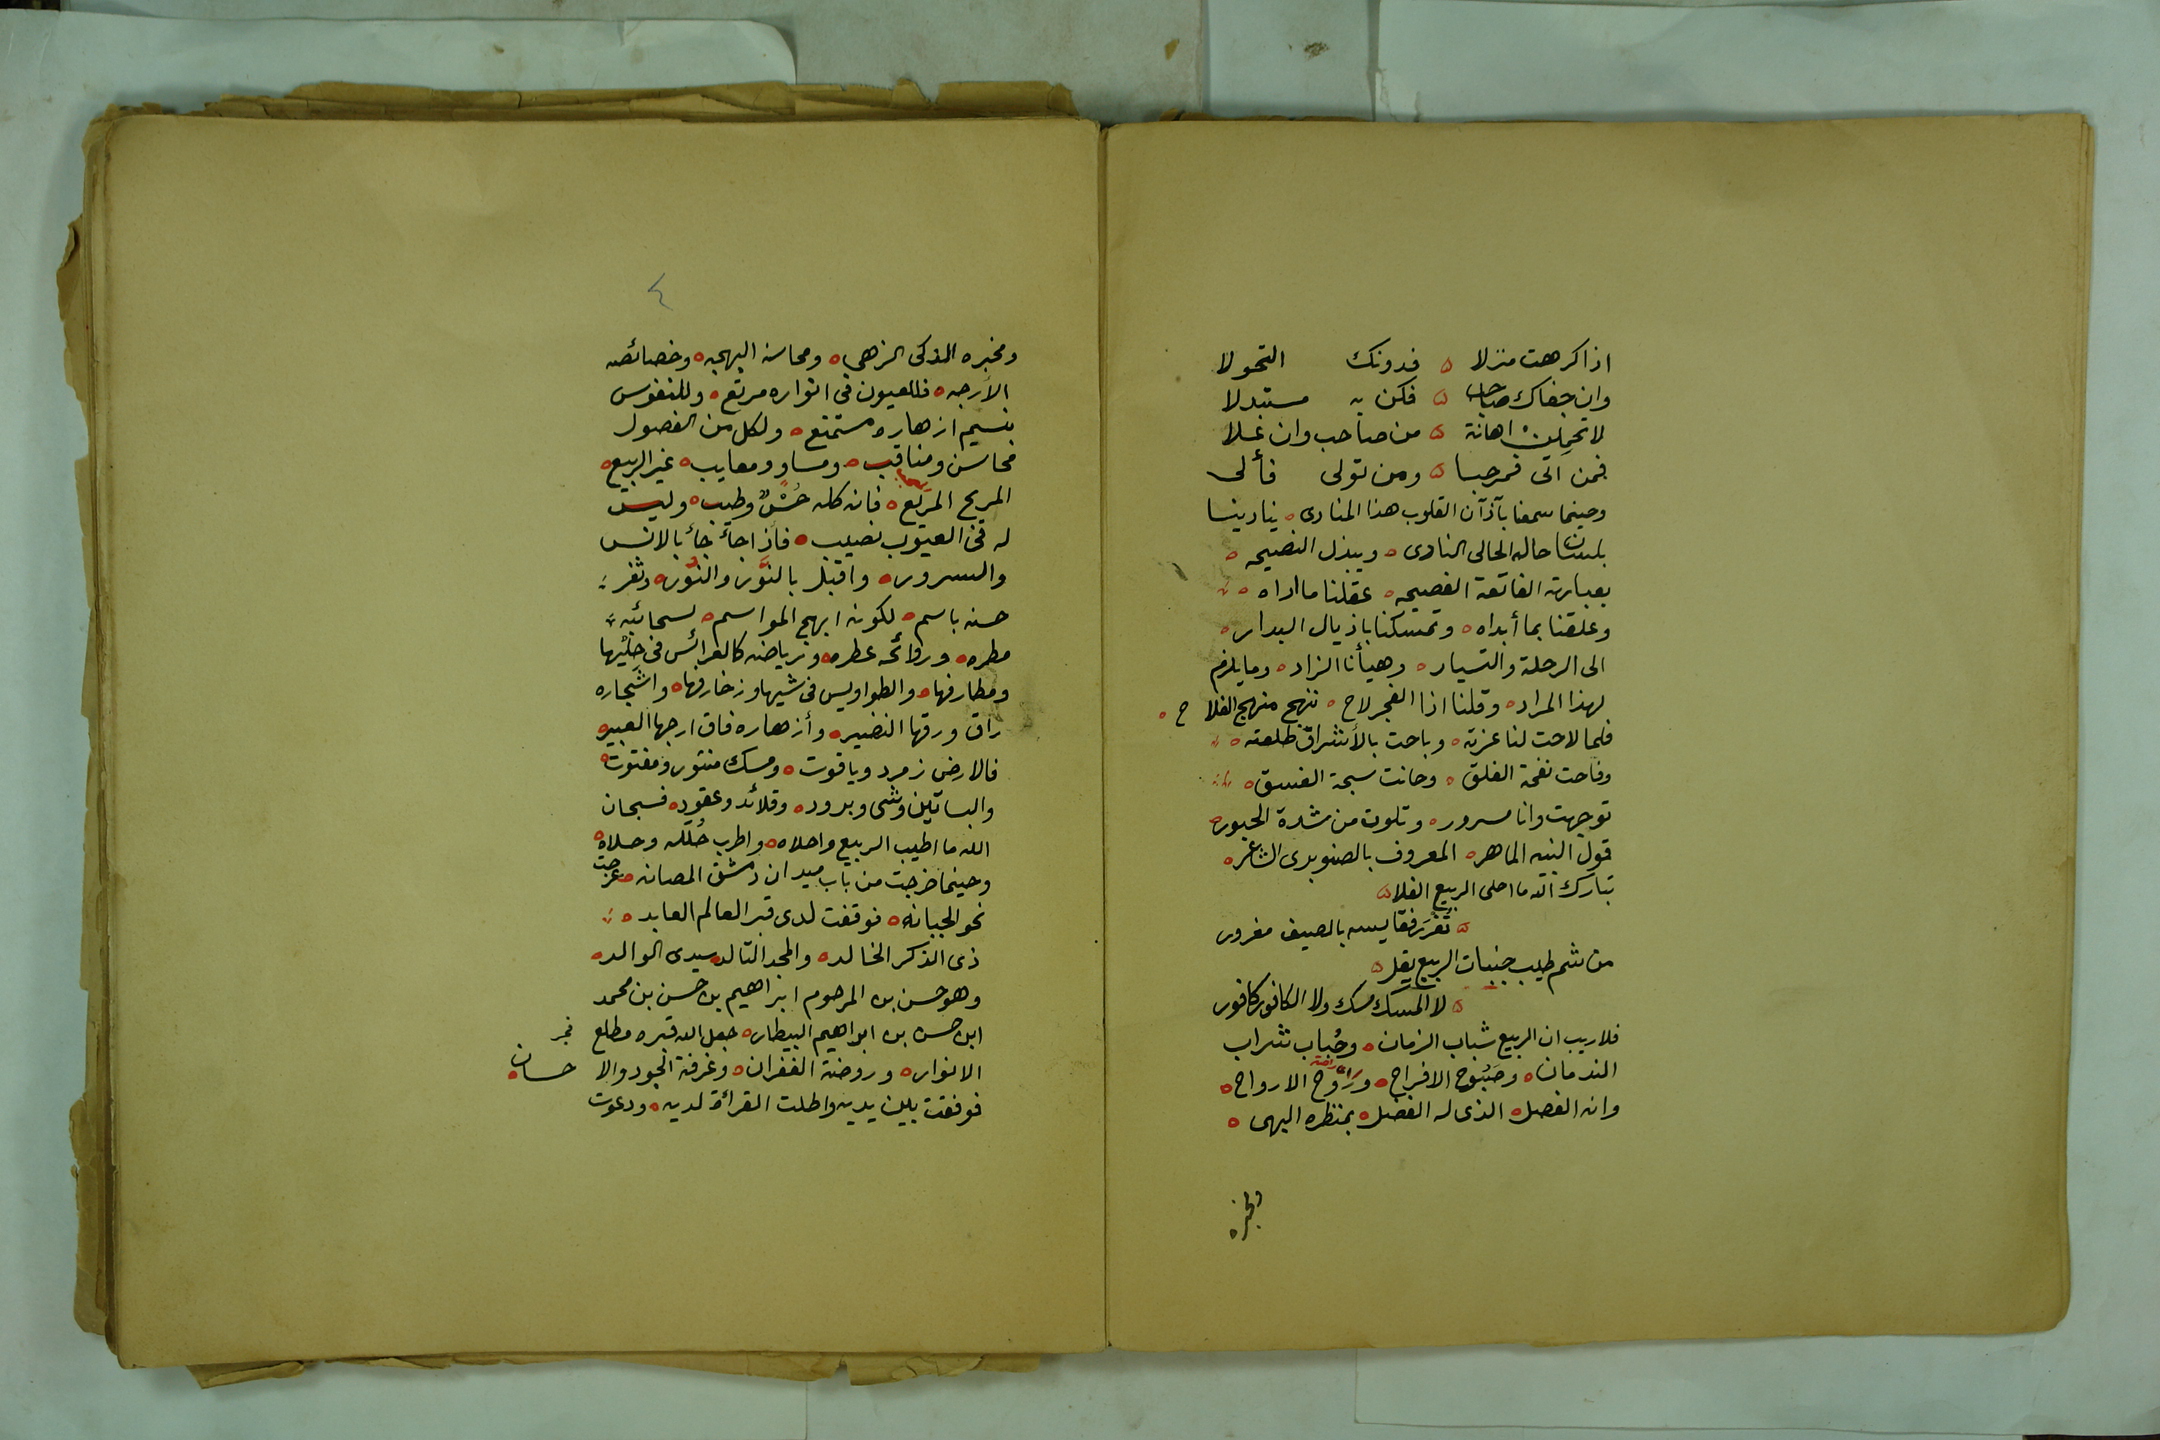 اذا كرهت منزلا ه فدونك التحولا
وان جفاك صاحب ه فكن به مستبدلا
لا تحملن اهانة ه من صاحب وان علا
فمن اتى فمرحبا ه ومن تولى فألى
وحينما سمعنا بآذآن القلوب هذا المنادى ه ينادينا
بلسان حاله الحالى النادى ه ويبذل النصيحه ه
بعبارته الفائقة الفصيحه ه عقلنا ما اراه ه
وعلقنا بما أبداه ه وتمسكنا باذيال البدار ه
الى الرحلة والتسيار ه وهيأنا الزاد ه وما يلزم
لهذا المراد ه وقلنا اذا الفجر لاح ه ننهج منهج الفلاح ه
فلما لاحت لنا غرته ه وباحت بالأشراق طلعته ه
وفاحت نفحة الفلق ه وحانت سبحة الغسق ه
توجهت وانا مسرور ه وتلوت من شدة الحبور ه
قول النبه الماهر ه المعروف بالصنوبرى الشاعر ه
تبارك الله ما احلى الربيع الفلا ه
ه تُغرر فقايسه بالصيف مغرور
من شم طيب جنيات الربيع يقل ه
ه لا المسك مسك ولا الكافور كافور
فلا ريب ان الربيع شباب الزمان ه وحُباب شراب
الندمان ه وصَبُوح الافراح ه ورَوح الارواح ه
وانه الفصل ه الذى له الفضل ه بمنظره البهى ه
ومخبره
٤
ومخبره الذكى الزهى ه ومحاسنه البهجه ه وخصائصه
الأرجه ه فللعيون فى انواره مرتع ه وللنفوس
بنسيم ازهاره مستمتع ه ولكل من الفصول
محاسن ومناقب ه ومساو ومعايب ه غير الربيع ه
المريح المربّع ه فانه كله حُسْنٌ وطيب ه وليس
له فى العيوب نصيب ه فأذا جاءَ جاءَ بالانس
والسرور ه واقبل بالنَّور والنُّور ه وثغر
حسنه باسم ه لكونه ابهج المواسم ه لسحائبه
مطره ه وروائحه عطره ه ورياضه كالعرائس فى حليها
ومطارفها ه والطواويس فى شيها وزخارفها ه واشجاره
راق ورقها النضير ه وأزهاره فاق ارجها العبير ه
فالارض زمرد وياقوت ه ومسك منثور ومفتوت ه
والبساتين وشى وبرود ه وقلائد وعقود ه فسبحان
الله ما اطيب الربيع واحلاه ه واطرب حُلله وحلاه ه
وحينما خرجت من باب ميدان دمشق المصانه ه عرجت
نحو الجبانه ه فوقفت لدى قبر العالم العابد ه
ذى الذكر الخالد ه والمجد التالد ه سيدى الوالد ه
وهو حسن بن المرحوم ابراهيم بن حسن بن محمد
ابن حسن بن ابراهيم البيطار ه جعل الله قبره مطلع فجر
الانوار ه وروضة الغفران ه وغرفة الجود والاحسان ه
فوقفت بين يديه واطلت القرائة لديه ه ودعوت